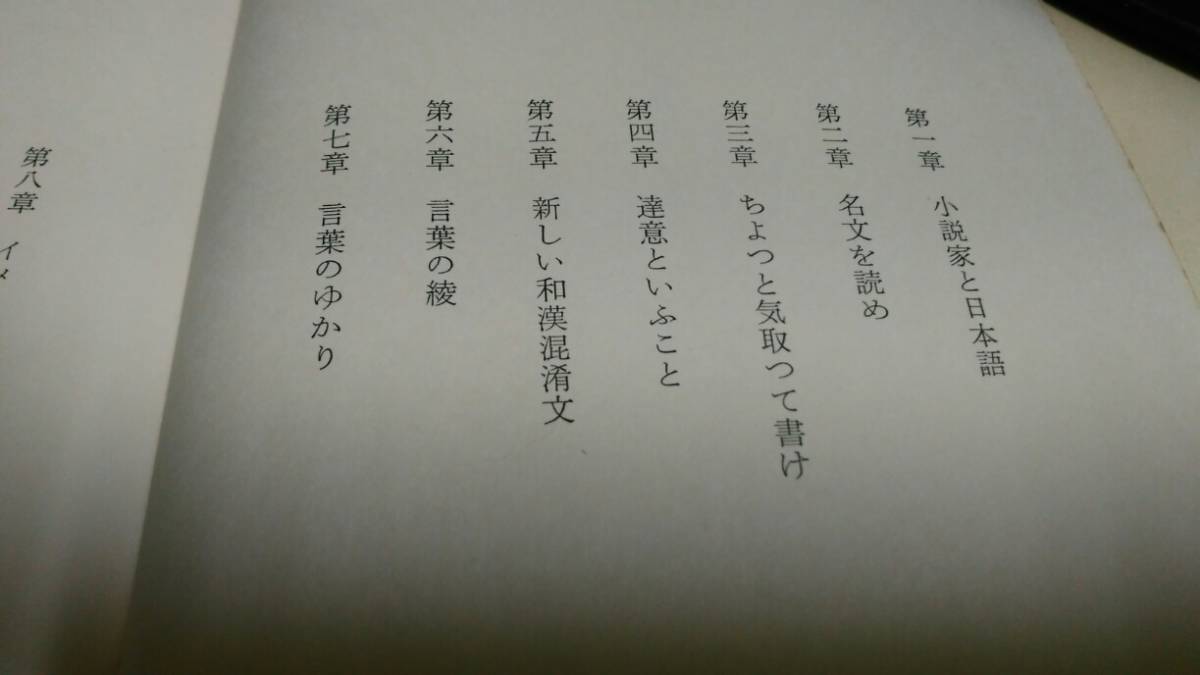 第一章 小説家と日本語
第二章 名文を読め
第三章 ちよつと気取つて書け
第四章 達意といふこと
第五章 新しい和漢混淆文
第六章 言葉の綾
第七章 言葉のゆかり
第八章 イメ